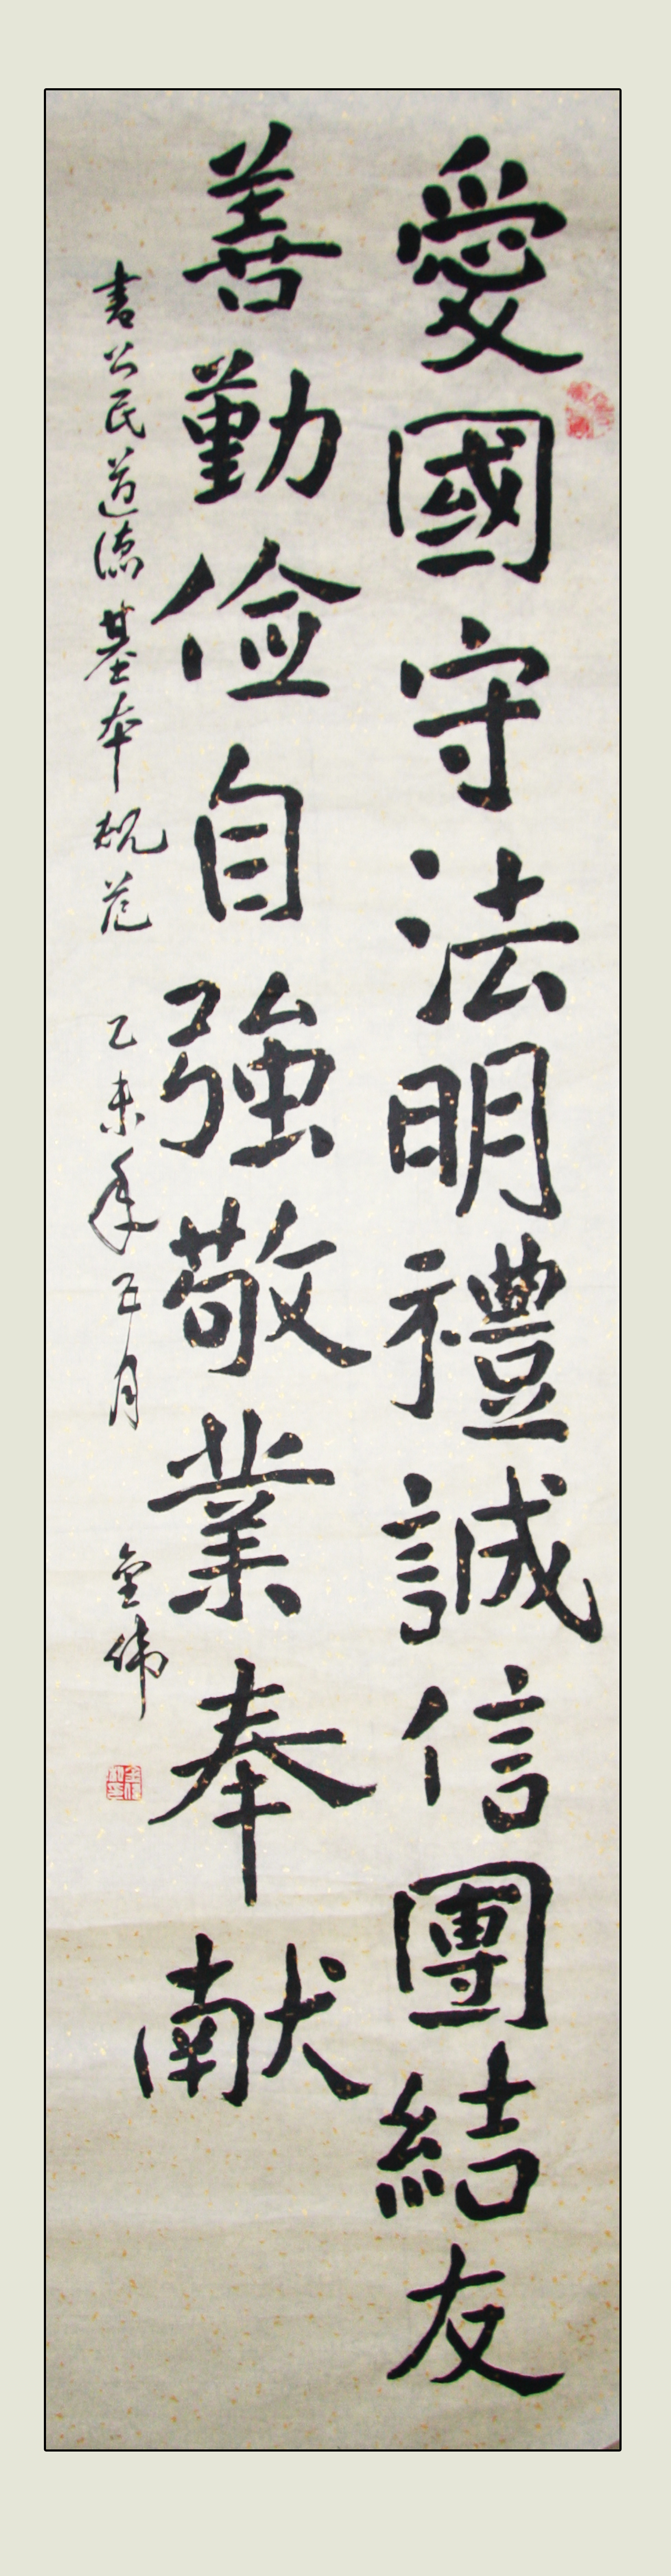 愛國守法明禮誠信團結友
善勤儉自強敬業奉献
書公民道德基本規范 乙未年五月 金偉